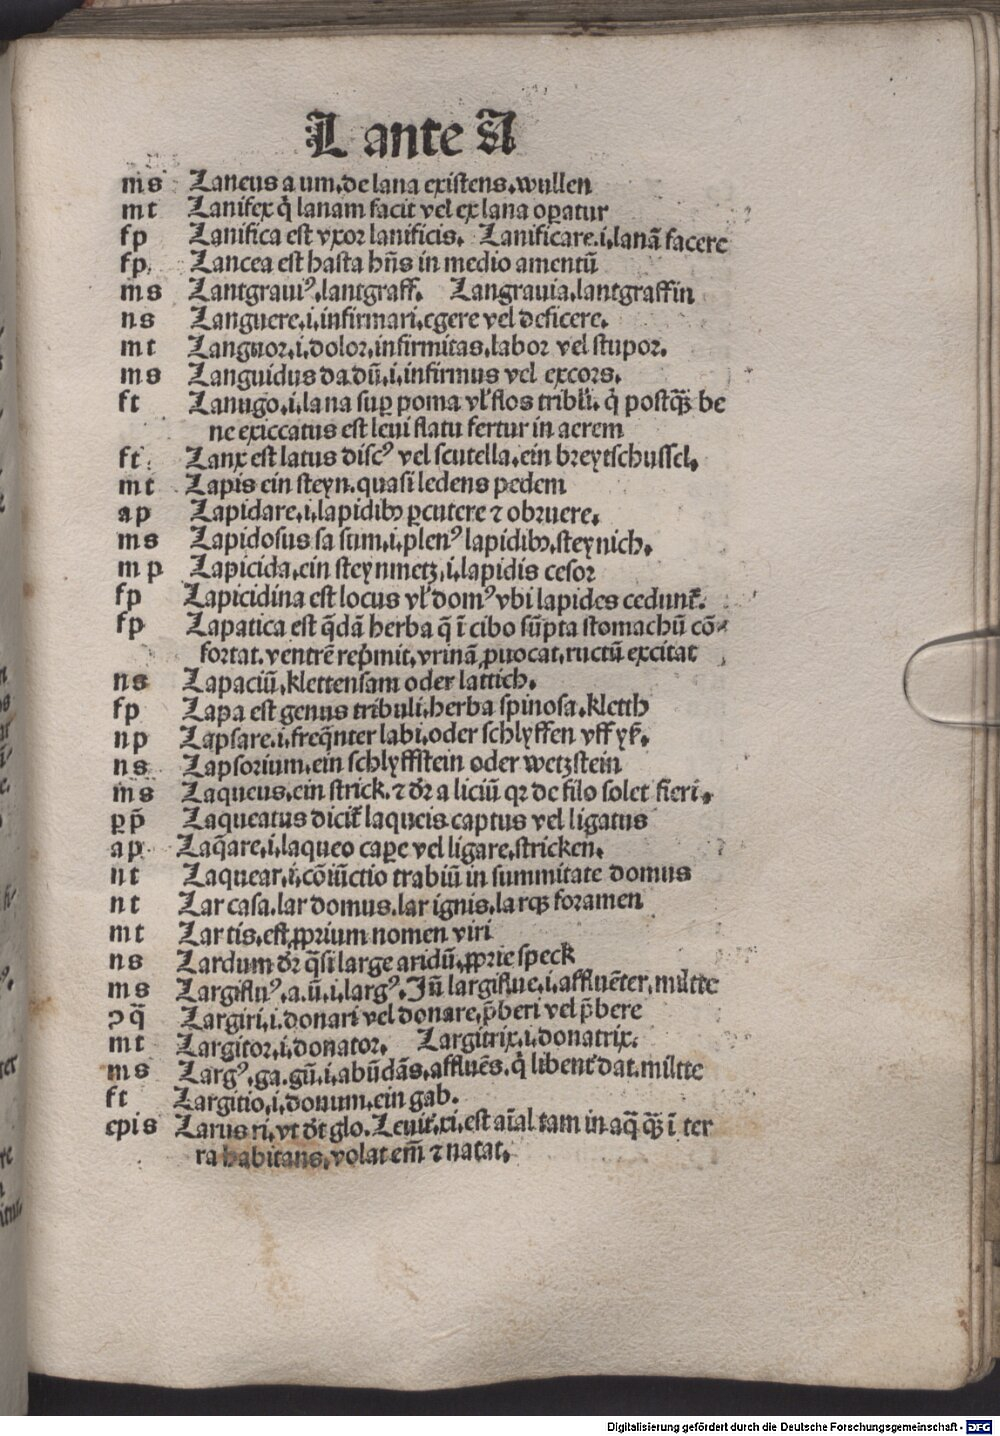 L ante A
ms Laneus a um.de lana existens.wullen
mt Lanifex q̇ lanam facit vel ex lana oꝑatur
fp Lanifica est vxor lanificis. Lanificare.i.lanā facere
fp. Lancea est hasta hn̄s in medio amentū
ms Lantgrauiꝰ.lantgraff. Langrauia.lantgraffin
ns Languere.i.infirmari.egere vel deficere.
mt Languor.i.dolor.infirmitas.labor vel stupor.
ms Languidus da dū.i.infirmus vel excors.
ft Lanugo.i.lana suꝑ poma vl̓ flos tribli̓. q̇ postqȝ̄ be
ne exiccatus est leui flatu fertur in aerem
ft. Lanx est latus discꝰ vel scutella.ein breytschussel.
mt Lapis ein steyn.quasi ledens pedem
ap Lapidare.i.lapidibꝫ ꝑcutere ⁊ obruere.
ms Lapidosus sa sum.i.plenꝰ lapidibꝫ.steynich.
mp Lapicida.ein steynmetz.i.lapidis cesor
fp Lapicidina est locus vl̓ domꝰ vbi lapides cedunt᷑.
fp Lapatica est q̄dā herba q̄ ī cibo sūpta stomachū cō⸗
fortat.ventrē rep̓mit.vrinā ꝓuocat.ructū excitat
ns Lapaciū.klettensam oder lattich.
fp Lapa est genus tribuli.herba spinosa.kletth
np Lapsare.i.freq̄nter labi.oder schlyffen vff ys̓.
ns Lapsorium.ein schlyffstein oder wetzstein
ms Laqueus.ein strick.⁊ dr̄ a liciū qꝛ de filo solet fieri.
ꝑp̄ Laqueatus dicit᷑ laqueis captus vel ligatus
ap Laq̄are.i.laqueo caꝑe vel ligare.stricken.
nt Laquear.i.cōiūctio trabiū in summitate domus
nt Lar casa.lar domus.lar ignis.larqȝ foramen
mt Lar tis.est ꝓprium nomen viri
ns Lardum dr̄ q̄si large aridū.ꝓprie speck
ms Largifluꝰ.a.ū.i.largꝰ.Jn̄ largiflue.i.affluēter.miltte
ↄq̄ Largiri.i.donari vel donare.p̄beri vel p̄bere
mt Largitor.i.donator. Largitrix.i.donatrix.
ms Largꝰ.ga.gū.i.abūdās.affluēs.q̇ libent̓ dat.miltte
ft Largitio.i.donum.ein gab.
epis Larus ri.vt dt̄ glo.Leuit̓.xi.est aīal tam in aq̄ qȝ̄ ī ter
ra habitans.volat em̄ ⁊ natat.
Digitalisierung gefördert durch die Deutsche Forschungsgemeinschaft - DFG